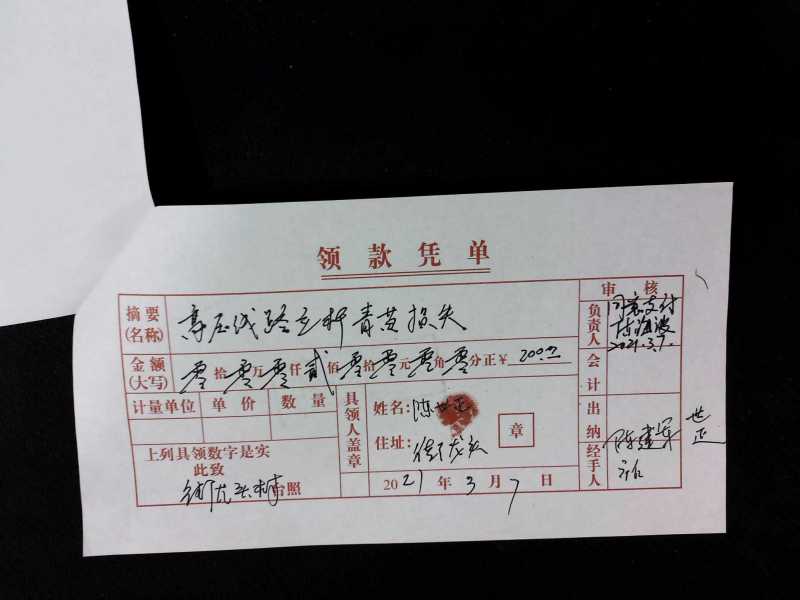 领款凭单
摘要(名称) 高压线路立杆青苗损失
审核
负责人 同意支付
2021.3.7.
金额(大写) 零拾零万零仟贰佰零拾零元零角零分正¥ 200.00
会计
计量单位 单价 数量
具领人盖章
姓名:陈世正
住址:
章
出纳
上列具领数字是实
此致
台照
2021年3月7日
经手人
陈建军
世正